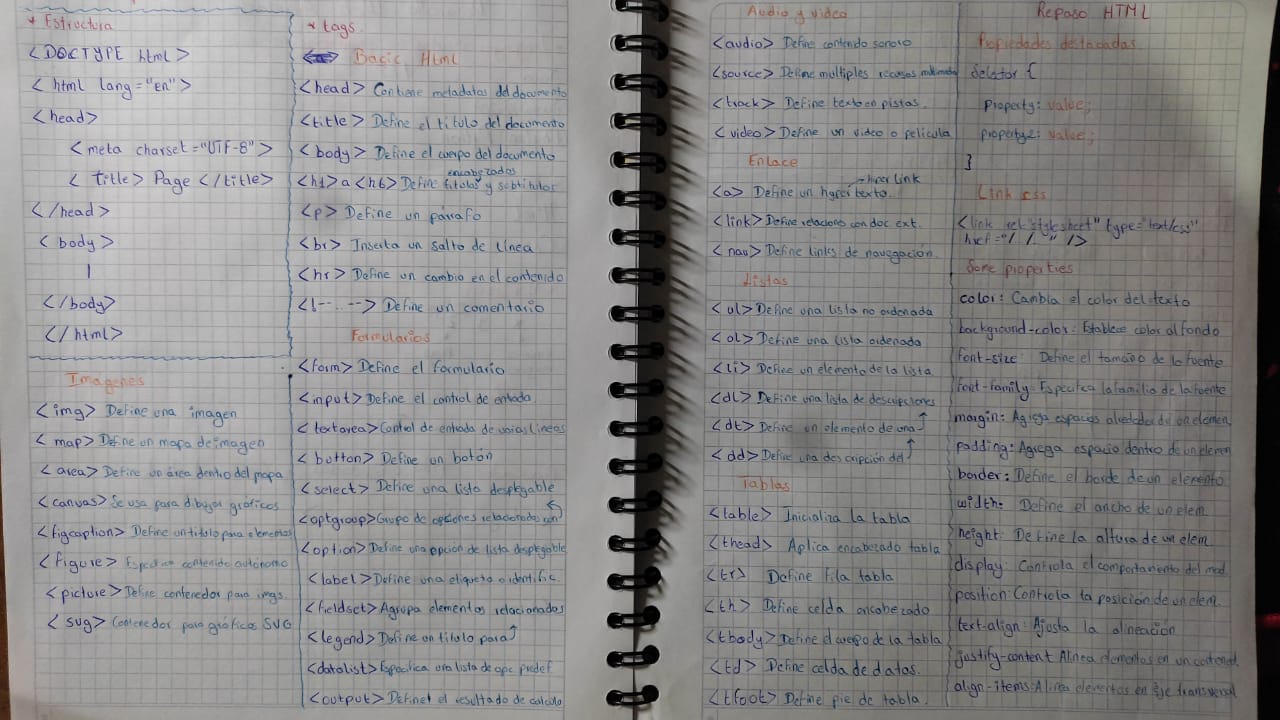 * Estructura
<DOCTYPE html>
<html lang="en">
<head>
<meta charset="UTF-8">
<title> Page </title>
</head>
<body>
|
</body>
</html>
Imagenes
<img> Define una imagen
<map> Define un mapa de imagen
<area> Define un área dentro del mapa
<canvas> Se usa para dibujar gráficos
<figcaption> Define un titulo para elementos
<figure> Especifica contenido autónomo
<picture> Define contenedor para imgs.
<svg> Contenedor para gráficos SVG
* tags
Basic Html
<head> Contiene metadatos del documento
<title> Define el título del documento
<body> Define el cuerpo del documento
encabezados
<h1> a <h6> Define titulos y subtitulos
<p> Define un párrafo
<br> Inserta un salto de línea
<hr> Define un cambio en el contenido
<!--...--> Define un comentario
Formularios
<form> Define el formulario
<input> Define el control de entrada
<textarea> Control de entrada de varias líneas
<button> Define un botón
<select> Define una lista desplegable
<optgroup> Grupo de opciones relacionadas con
<option> Define una opción de lista desplegable
<label> Define una etiqueta o identific.
<fieldset> Agrupa elementos relacionados
<legend> Define un titulo para
<datalist> Especifica una lista de opc predef
<output> Define el resultado de calculo
Audio y video
<audio> Define contendo sonoro
<source> Define multiples recusos multimedia
<track> Define texto en pistas.
<video> Define un video o pelicula
Enlace
hiperlink
<a> Define un hyper texto.
<link> Define relaciones con doc ext.
<nav> Define links de navegación.
Listas
<ul> Define una lista no ordenada
<ol> Define una lista ordenada
<li> Define un elemento de la lista
<dl> Define una lista de descripciones
<dt> Define un elemento de una
<dd> Define una descripción del
Tablas
<table> Inicializa la tabla
<thead> Aplica encabezado tabla
<tr> Define fila tabla
<th> Define celda encabezado
<tbody> Define el cuerpo de la tabla
<td> Define celda de datos.
<tfoot> Define pie de tabla.
Repaso HTML
Propiedades destacadas
Selector {
property: value;
property2: value;
}
Link css
<link rel="stylesheet" type="text/css"
href="/ /. " />
Some properties
color: Cambia el color del texto
background-color: Establece color al fondo
font-size: Define el tamaño de la fuente
font-family: Especifica la familia de la fuente
margin: Agrega espacios alrededor de un elemen.
padding: Agrega espacio dentro de un elemen
border: Define el borde de un elemento
width: Define el ancho de un elem.
height: Define la altura de un elem.
display: Controla el comportamiento del mod.
position: Controla la posicion de un elem.
text-align: Ajusta la alineación
justify-content Alinea elementos en un contened.
align-items: Alinea elementos en eje transversal